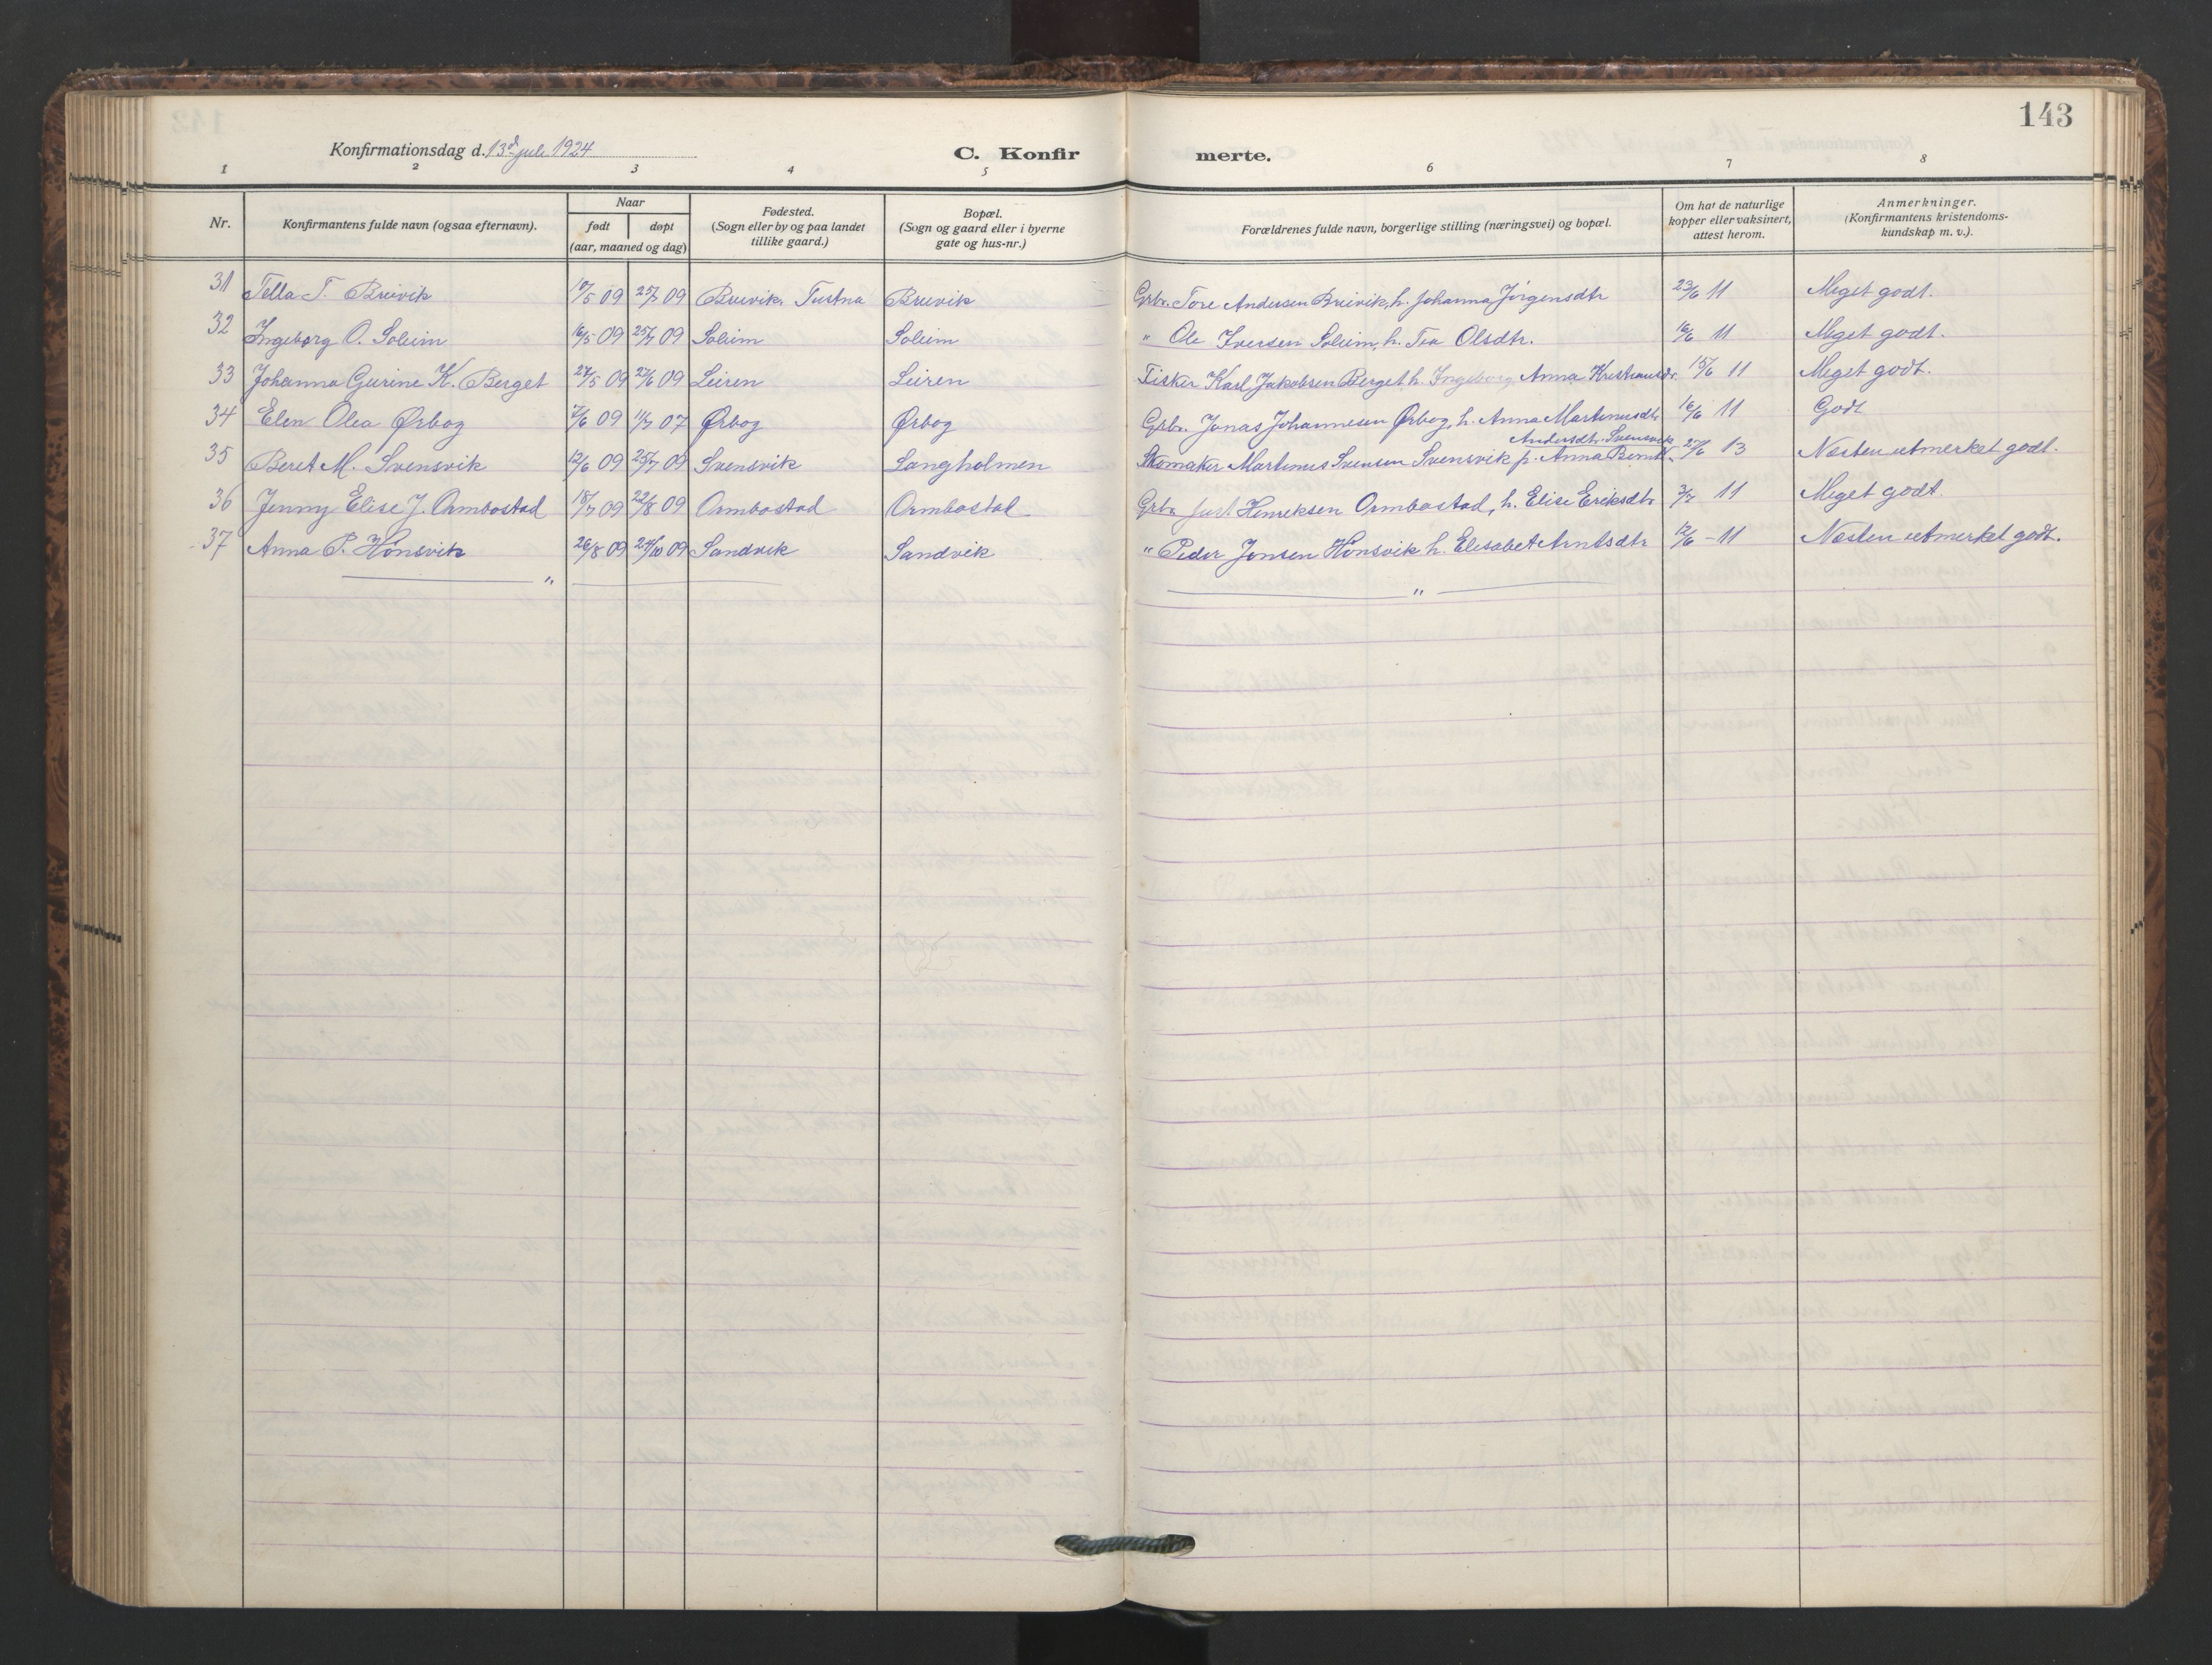 143
Konfirmationsdag d. 13de juli 1924
C. Konfirmerte.
1 2 3 4 5 6 7 8
Nr. Konfirmantens fulde navn (ogsaa efternavn). Naar født døpt (aar, maaned og dag) Fødested. (Sogn eller by og paa landet tillike gaard.) Bopæl. (Sogn og gaard eller i byerne gate og hus-nr.) Forældrenes fulde navn, borgerlige stilling (næringsvei) og bopæl. Om hat de naturlige kopper eller vaksinert, attest herom. Anmerkninger. (Konfirmantens kristendoms-kundskap m. v.).
31 Tella T. Breivik 10/5 09 25/7 09 Breivik, Tustna Breivik Grbr. Tore Andersen Breivik, h. Johanna Jørgensdtr 23/6 11 Meget godt.
32 Ingeborg O. Soleim 16/5 09 25/7 09 Soleim Soleim " Ole Iversen Soleim, h. Tea Olsdtr. 16/6 11 Meget godt.
33 Johanna Gurine K. Berget 27/5 09 27/6 09 Leiren Leiren Fisker Karl Jakobsen Berget h. Ingeborg Anna Kristiansdr. 15/6 11 Meget godt.
34 Elen Olea Ørbog 7/6 09 11/7 07 Ørbog Ørbog Grbr. Jonas Johannesen Ørbog, h. Anna Martinusdtr 16/6 11 Godt
Andersdtr. Svensvik
35 Beret M. Svensvik 12/6 09 25/7 09 Svensvik Langholmen Skomaker Martinus Svensen Svensvik p. Anna Berntt. 27/6 13 Næsten utmerket godt.
36 Jenny Elise J. Ormbostad 18/7 09 22/8 09 Ormbostad Ormbostad Grbr Just Henriksen Ormbostad, h. Elise Eriksdtr 3/7 11 Meget godt.
37 Anna P. Hønsvik 26/8 09 24/10 09 Sandvik Sandvik " Peder Jonsen Hønsvik h. Elisabet Arntsdtr 12/6 - 11 Næsten utmerket godt.
" "